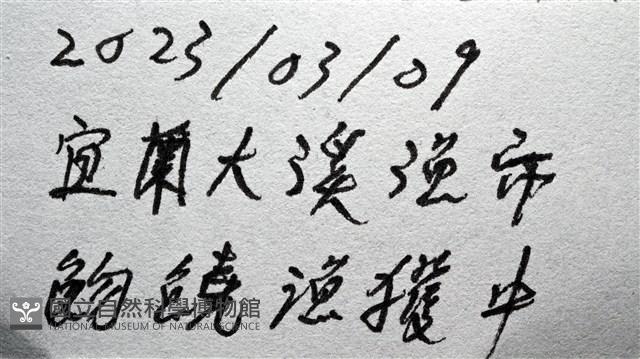 2023/03/09
宜蘭大溪漁市
鮈鱙漁獲中
國立自然科學博物館
NATIONAL MUSEUM OF NATURAL SCIENCE